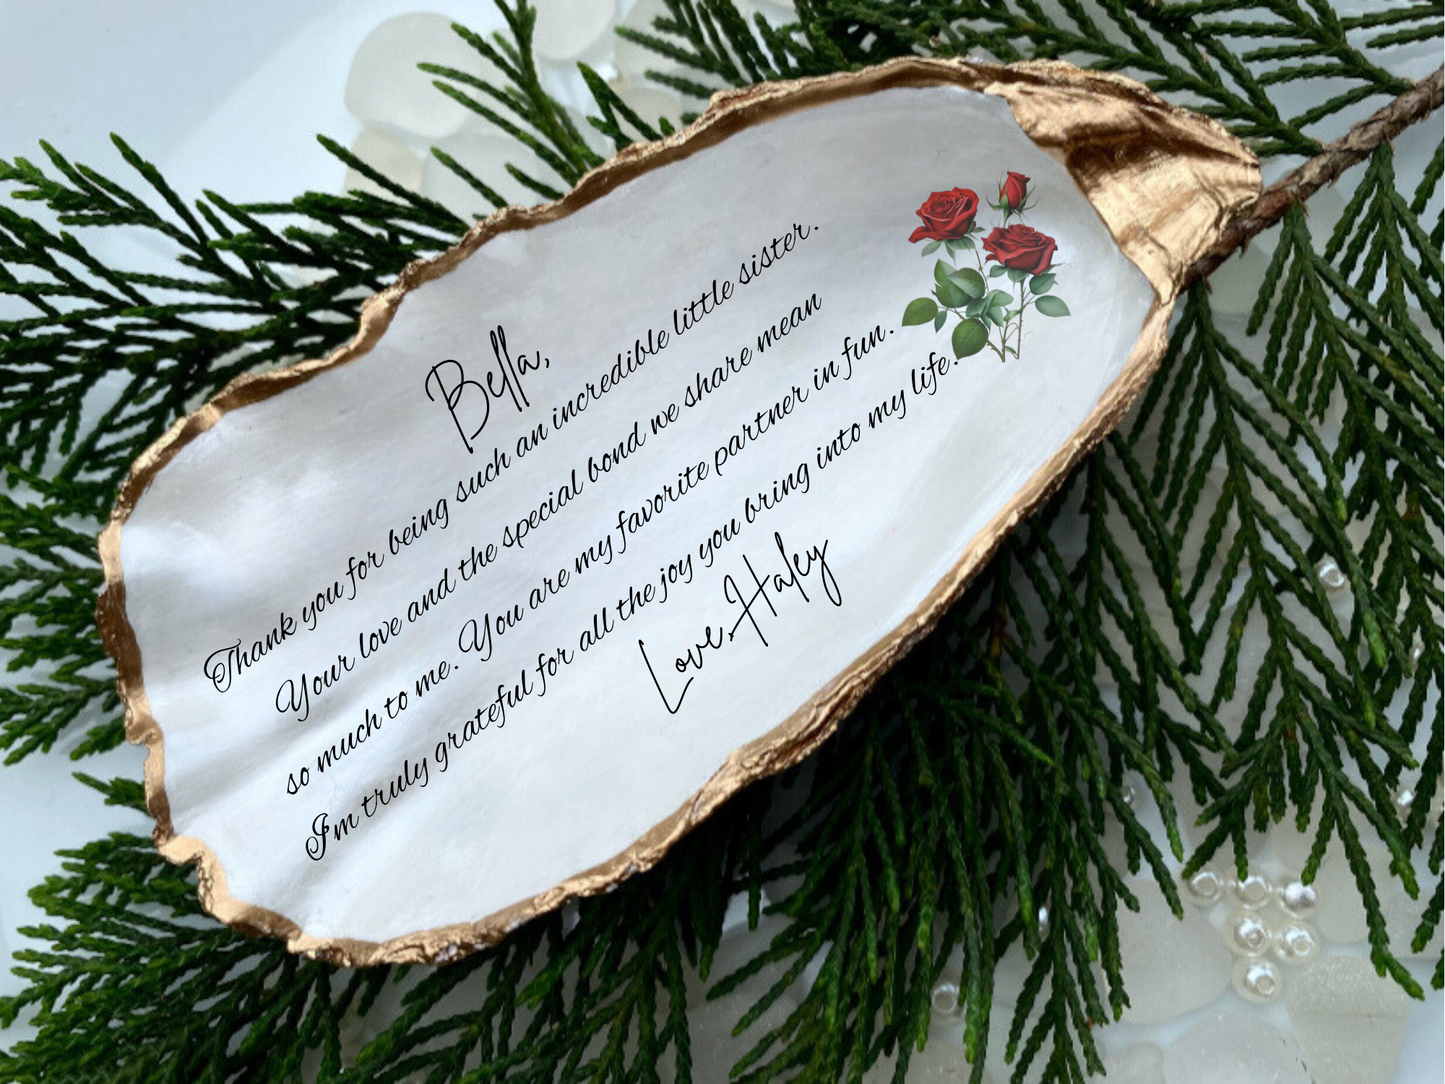 Bella,
Thank you for being such an incredible little sister.
Your love and the special bond we share mean
so much to me. You are my favorite partner in fun.
I'm truly grateful for all the joy you bring into my life.
Love, Haley